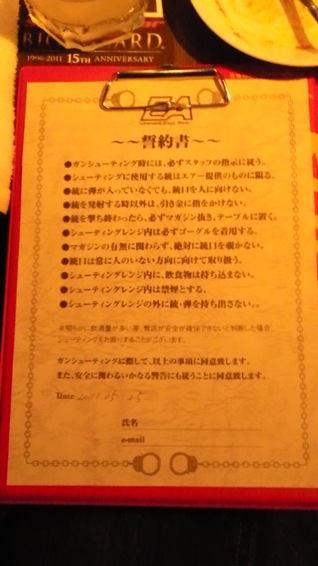 1996-2011 15TH ANNIVERSARY
EA
～～誓約書～～
●ガンシューティング時には、必ずスタッフの指示に従う。
●シューティングに使用する銃はエアー提供のものに限る。
●銃に弾が入っていなくても、銃口を人に向けない。
●銃を発射する時以外は、引き金に指をかけない。
●銃を撃ち終わったら、必ずマガジン抜き、テーブルに置く。
●シューティングレンジ内は必ずゴーグルを着用する。
●マガジンの有無に関わらず、絶対に銃口を覗かない。
●銃口は常に人のいない方向に向けて取り扱う。
●シューティングレンジ内に、飲食物は持ち込まない。
●シューティングレンジ内は禁煙とする。
●シューティングレンジの外に銃・弾を持ち出さない。
シューティングをお断りすることがございます。
ガンシューティングに際して、以上の事項に同意致します。
また、安全に関わるいかなる警告にも従うことに同意致します。
Date
氏名
e-mail